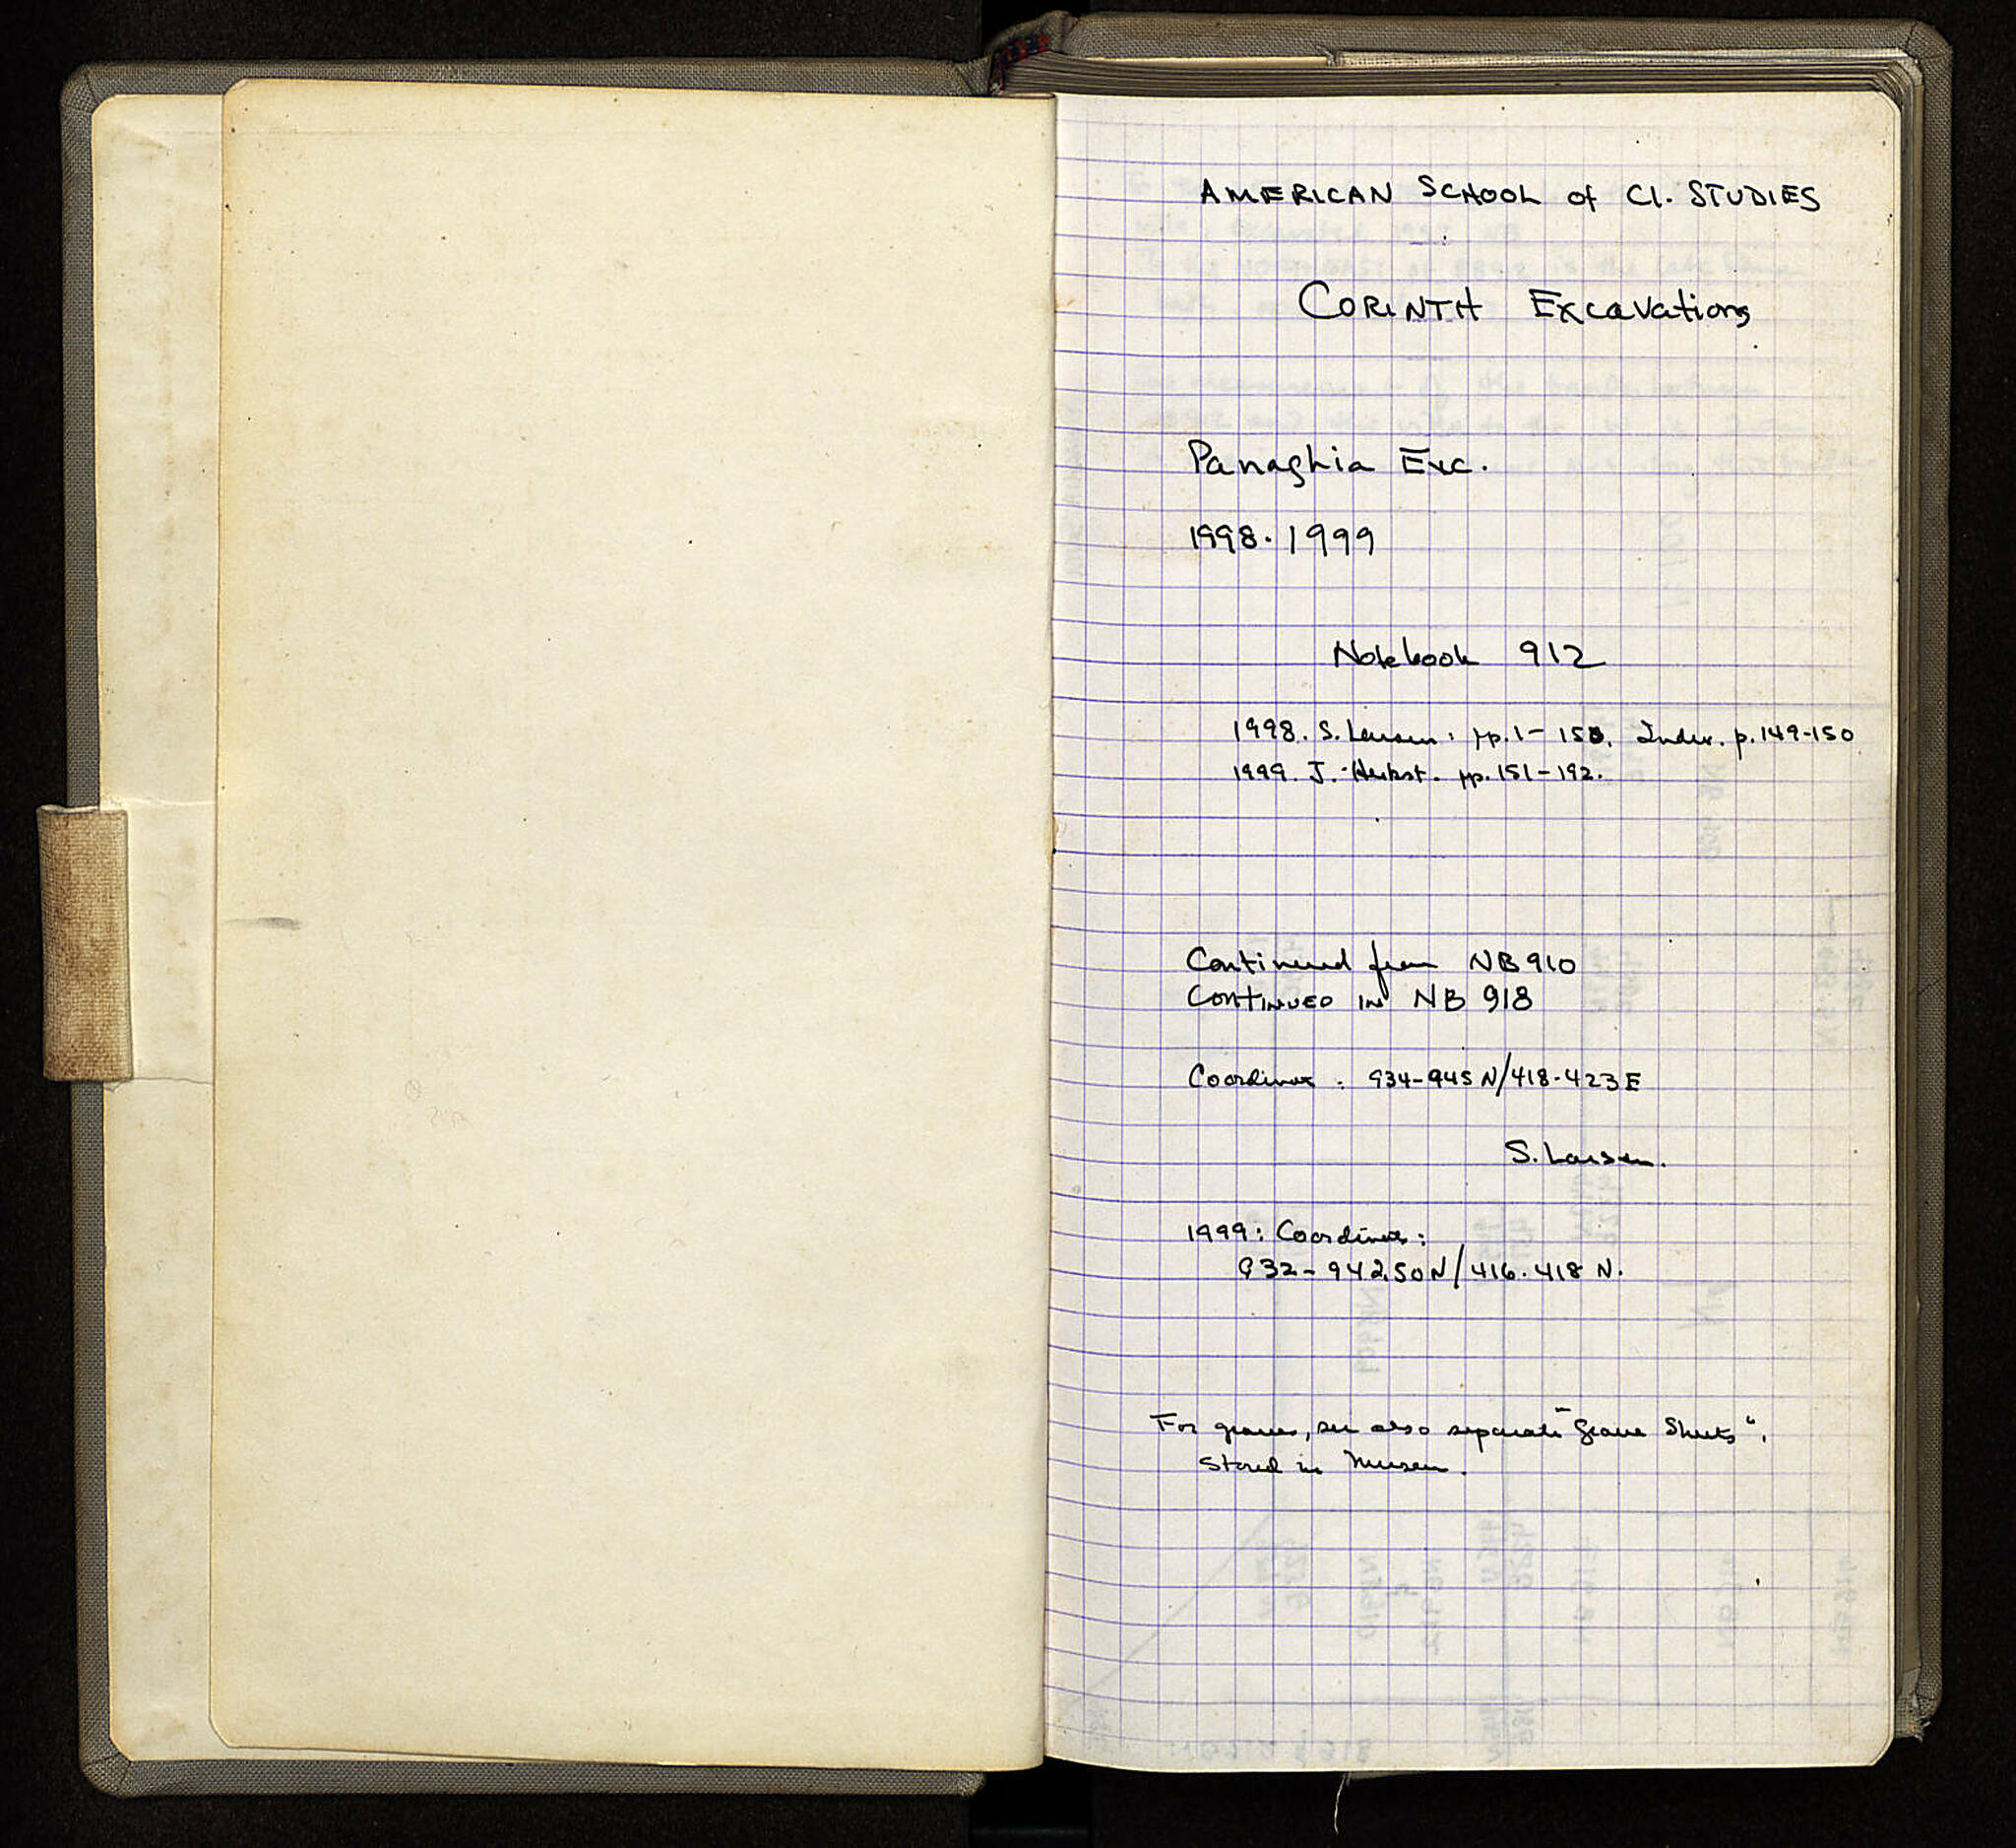 AMERICAN SCHOOL of Cl. STUDIES
CORINTH Excavations
Panaghia Exc.
1998. 1999
Notebook 912
1998. S. Larsen: pp. 1 - 150. Index. p. 149-150
1999. J. Herbst. pp. 151 - 192.
Continued from NB 910
CONTINUED IN NB 918
934-945 N/418-423 E
S. Larsen.
1999:
932 - 942.50 N/416-418 N.
For graves, see also separate "Grave Sheets".
Stored in Museum.